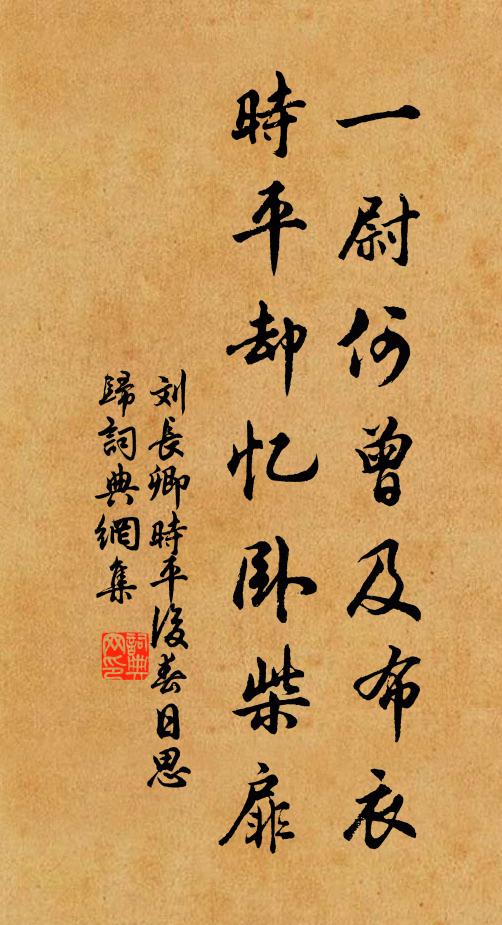 一尉何曾及布衣
時平却忆卧柴扉
刘長卿時平後春日思
歸詞典網集
詞典網印